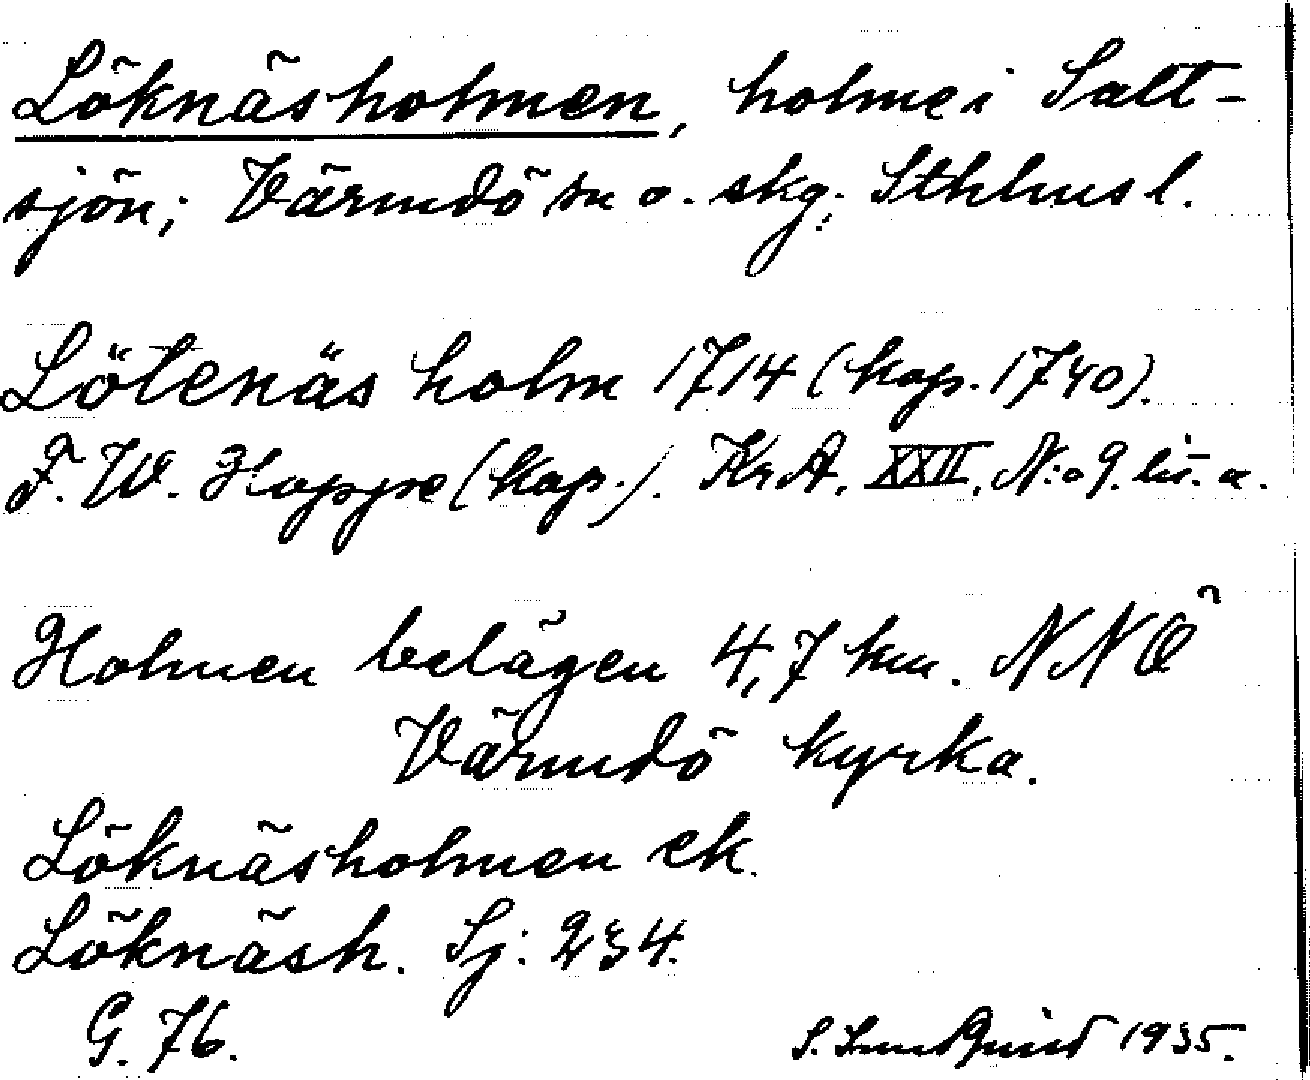 Löknäsholmen, holme i Salt-
sjön; Värmdö sn o. skg; Sthlms l.
Lötenäs holm 1714 (kop. 1740).
F. W. Hoppe (kop.). KrA. XXII, N:o 9. lit. a.
Holmen belägen 4,7 km. NNÖ
Värmdö kyrka.
Löknäsholmen ek.
Löknäsh. Sj: 234.
G. 76.
S. Lundquist 1935.